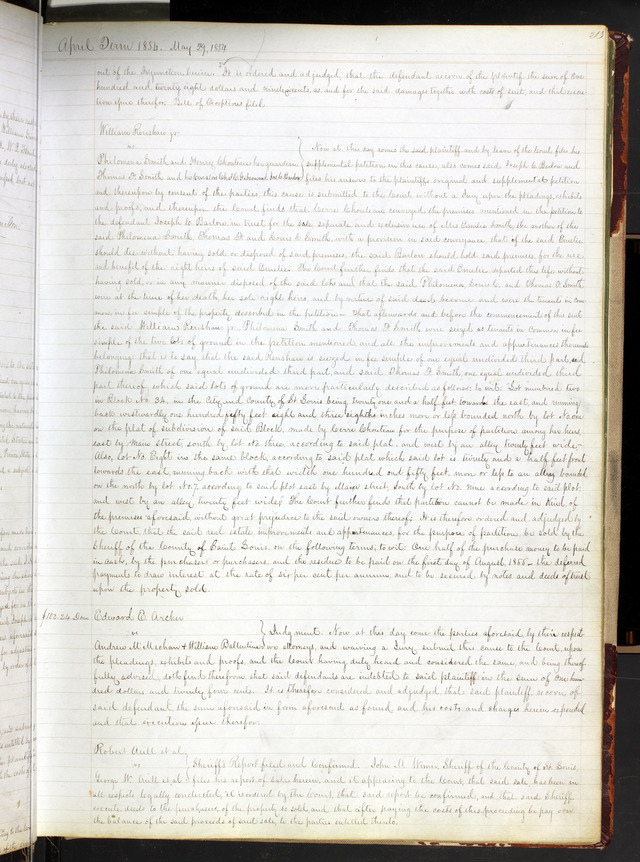 213
April Term 1854. May 29, 1854
out of the Injunction herein. It is ordered and adjudged that the defendant recover of the plaintiff the sum of One
hundred and twenty eight dollars and ninety cents as and for the said damages together with costs of suit, and that execu-
tion issue therefor. Bill of Exceptions filed
William Renshaw jr.
vs
Philomena Smith and Henry Chouteau her guardian
Thomas F. Smith and his
Now at this day comes the said plaintiff and by leave of the Court files his
supplemental petition in this cause, also comes said Joseph C. Barlow and
files his answer to the plaintiffs original and supplemental petition
and thereupon by consent of the parties this cause is submitted to the Court without a Jury upon the pleadings, exhibits
and proofs, and thereupon the Court finds that Pierre Chouteau conveyed the premises mentioned in the petition to
the defendant Joseph C. Barlow in trust for the sole separate and exclusive use of Mrs Emilie Smith, the mother of the
said Philomena Smith, Thomas F. and Louis C. Smith, with a provision in said conveyance, that if the said Emilie
should die without having sold or disposed of said premises, the said Barlow should hold said premises for the use
and benefit of the right heirs of said Emilie. The Court further finds that the said Emilie departed this life without
having sold, or in any manner disposed of the said lots and that the said Philomena, Louis C. and Thomas F. Smith
were at the time of her death her sole right heirs, and by virtue of said deed became and were the tenants in com-
mon in fee simple of the property described in the petition. That afterwards and before the commencement of this suit
the said William Renshaw jr. Philomena Smith and Thomas F. Smith were seized as tenants in Common in fee
simple of the two lots of ground in the petition mentioned, and all the improvements and appurtenances thereunto
belonging, that is to say, that the said Renshaw is seized in fee simple of one equal undivided third part, said
Philomena Smith of one equal undivided third part, and said Thomas F. Smith one equal undivided third
part thereof, which said lots of ground are more particularly described as follows: to wit: Lot numbered two
in Block No 34, in the City and County of St Louis being twenty one and a half feet towards the east, and running
back westwardly one hundred fifty feet eight and three eighths inches more or less bounded north by lot No one
on the plat of subdivision of said Block, made by Pierre Chouteau for the purpose of partition among his heirs,
east by Main Street, south by lot No three according to said plat, and west by an alley twenty feet wide.
Also, lot No. Eight in the same block, according to said plat which said lot is twenty and a half feet front
towards the east, running back with that width one hundred and fifty feet more or less to an alley bounded
on the north by lot No 7, according to said plat east by Main street, south by lot No. nine according to said plat,
and west by an alley twenty feet wide. The Court further finds that partition cannot be made in kind, of
the premises aforesaid without great prejudice to the said owners thereof. It is therefore ordered and adjudged by
the Court that the said real estate improvements and appurtenances, for the purpose of partition, be sold by the
Sheriff of the County of Saint Louis, on the following terms, to wit: One half of the purchase money to be paid
in cash, by the purchasers or purchasers, and the residue to be paid on the first day of August 1855 - the deferred
payment to draw interest at the rate of six per cent per annum, and to be secured by notes and deeds of trust
upon the property sold.
$102.24 Dam
Edward E. Archer
vs
Andrew M. Mechan & William Ballentine
Judgment. Now at this day come the parties aforesaid, by their respect-
ive attorneys, and waiving a Jury, submit this cause to the Court, upon
the pleadings, exhibits and proofs, and the Court having duly heard and considered the same, and being thereof
fully advised, doth find therefrom, that said defendants are indebted to said plaintiff in the sum of One hun-
dred dollars and twenty four cents. It is therefore considered and adjudged, that said plaintiff recover of
said defendant the sum aforesaid in form aforesaid as found, and his costs and charges herein expended
and that execution issue therefor.
Robert Aull et al.
vs
George W. Aull et al
Sheriff's Report filed and Confirmed. John M. Wimer Sheriff of the County of St. Louis,
files his report of sale herein, and it appearing to the Court, that said sale has been in
all respects legally conducted, it is ordered by the Court, that said report be confirmed, and that said Sheriff
execute deeds to the purchasers of the property so sold, and that after paying the costs of this proceeding he pay over
the balance of the said proceeds of said sale, to the parties entitled thereto.